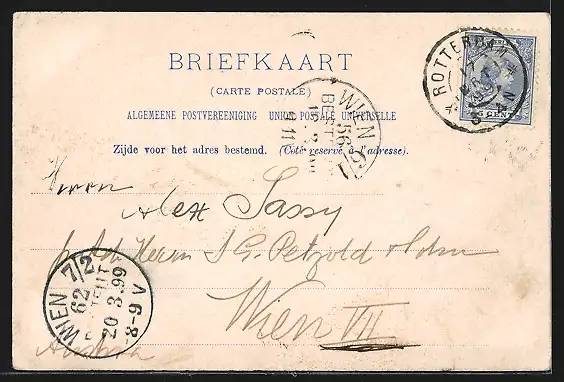 BRIEFKAART
(CARTE POSTALE)
ALGEMEENE POSTVEREENIGING UNION POSTALE UNIVERSELLE
Zijde voor het adres bestemd. (Côté reservé à l'adresse).
ROTTERDAM
CENT
WIEN 6/1
56
BEST
Herrn
Alex Sassy
p. Adr. Herrn J G. Petzold & Sohn
Wien VII
Austria
WIEN 7/2
62
20 3.99
8-9 V